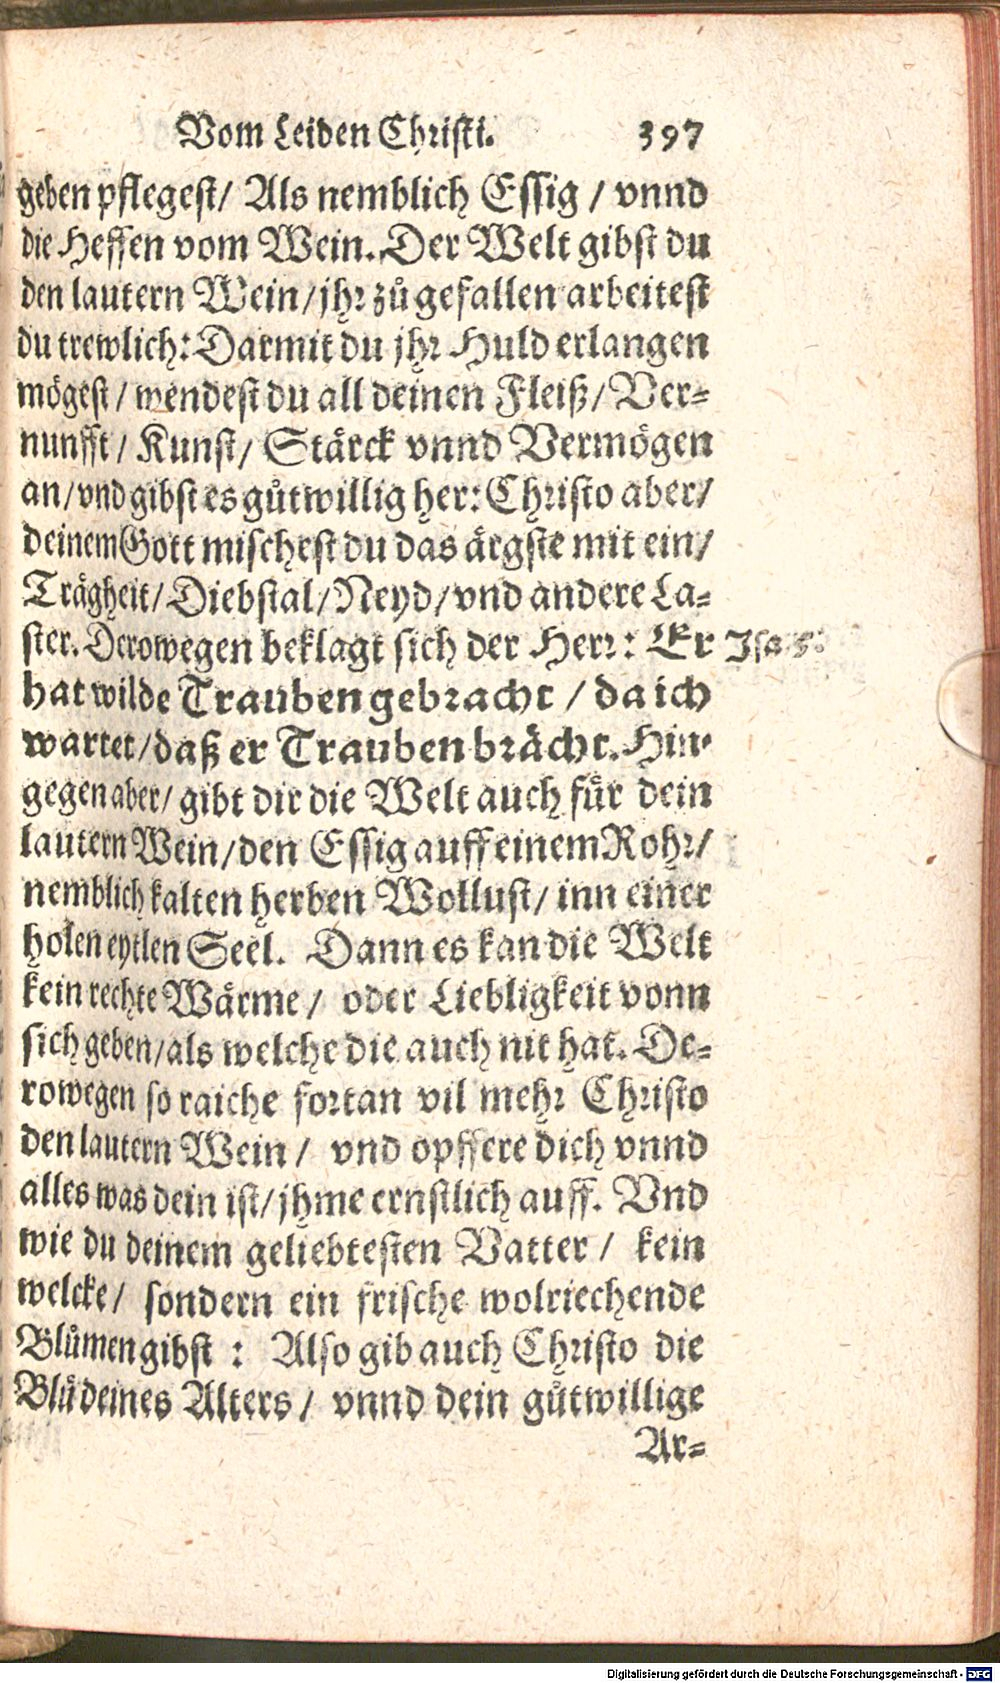 Vom Leiden Christi. 397
geben pflegest/ Als nemblich Essig / vnnd
die Heffen vom Wein. Der Welt gibst du
den lautern Wein/jhr zů gefallen arbeitest
du trewlich: Darmit du jhr Huld erlangen
mögest/ wendest du all deinen Fleiß/ Ver-
nunfft/ Kunst/ Stärck vnnd Vermögen
an/vnd gibst es gůtwillig her: Christo aber/
deinem Gott mischest du das ärgste mit ein/
Trägheit/ Diebstal/ Neyd/ vnd andere La-
ster. Derowegen beklagt sich der Herr: Er Isa. 5.
hat wilde Trauben gebracht / da ich
wartet/daß er Trauben brächt. Hin-
gegen aber/ gibt dir die Welt auch für dein
lautern Wein/den Essig auff einem Rohr/
nemblich kalten herben Wollust/ inn einer
holen eytlen Seel. Dann es kan die Welt
kein rechte Wärme/ oder Liebligkeit vonn
sich geben/als welche die auch nit hat. De-
rowegen so raiche fortan vil mehr Christo
den lautern Wein/ vnd opffere dich vnnd
alles was dein ist/jhme ernstlich auff. Vnd
wie du deinem geliebtesten Vatter/ kein
welcke/ sondern ein frische wolriechende
Blůmen gibst : Also gib auch Christo die
Blů deines Alters/ vnnd dein gůtwillige
Ar-
Digitalisierung gefördert durch die Deutsche Forschungsgemeinschaft - DFG